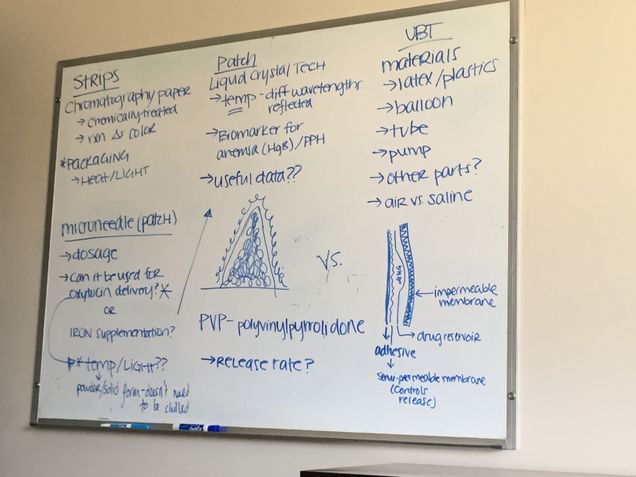 STRIPS
Chromatography paper
→ chemically-treated
→ rxn Δs color
*PACKAGING
→ HEAT/LIGHT
microneedle (PATCH)
→ dosage
→ can it be used for
oxytocin delivery? *
OR
IRON supplementation?
* temp/LIGHT??
powder/solid form - doesn't need
to be chilled
Patch
Liquid Crystal Tech
→ temp - diff wavelengths
reflected
→ Biomarker for
anemia (HgB)/PPH
→ useful data??
VS.
PVP - polyvinylpyrrolidone
→ RELEASE RATE?
UBT
materials
→ latex/plastics
→ balloon
→ tube
→ pump
→ other parts?
→ air vs saline
drug
impermeable
membrane
drug reservoir
adhesive
semi-permeable membrane
(controls
release)